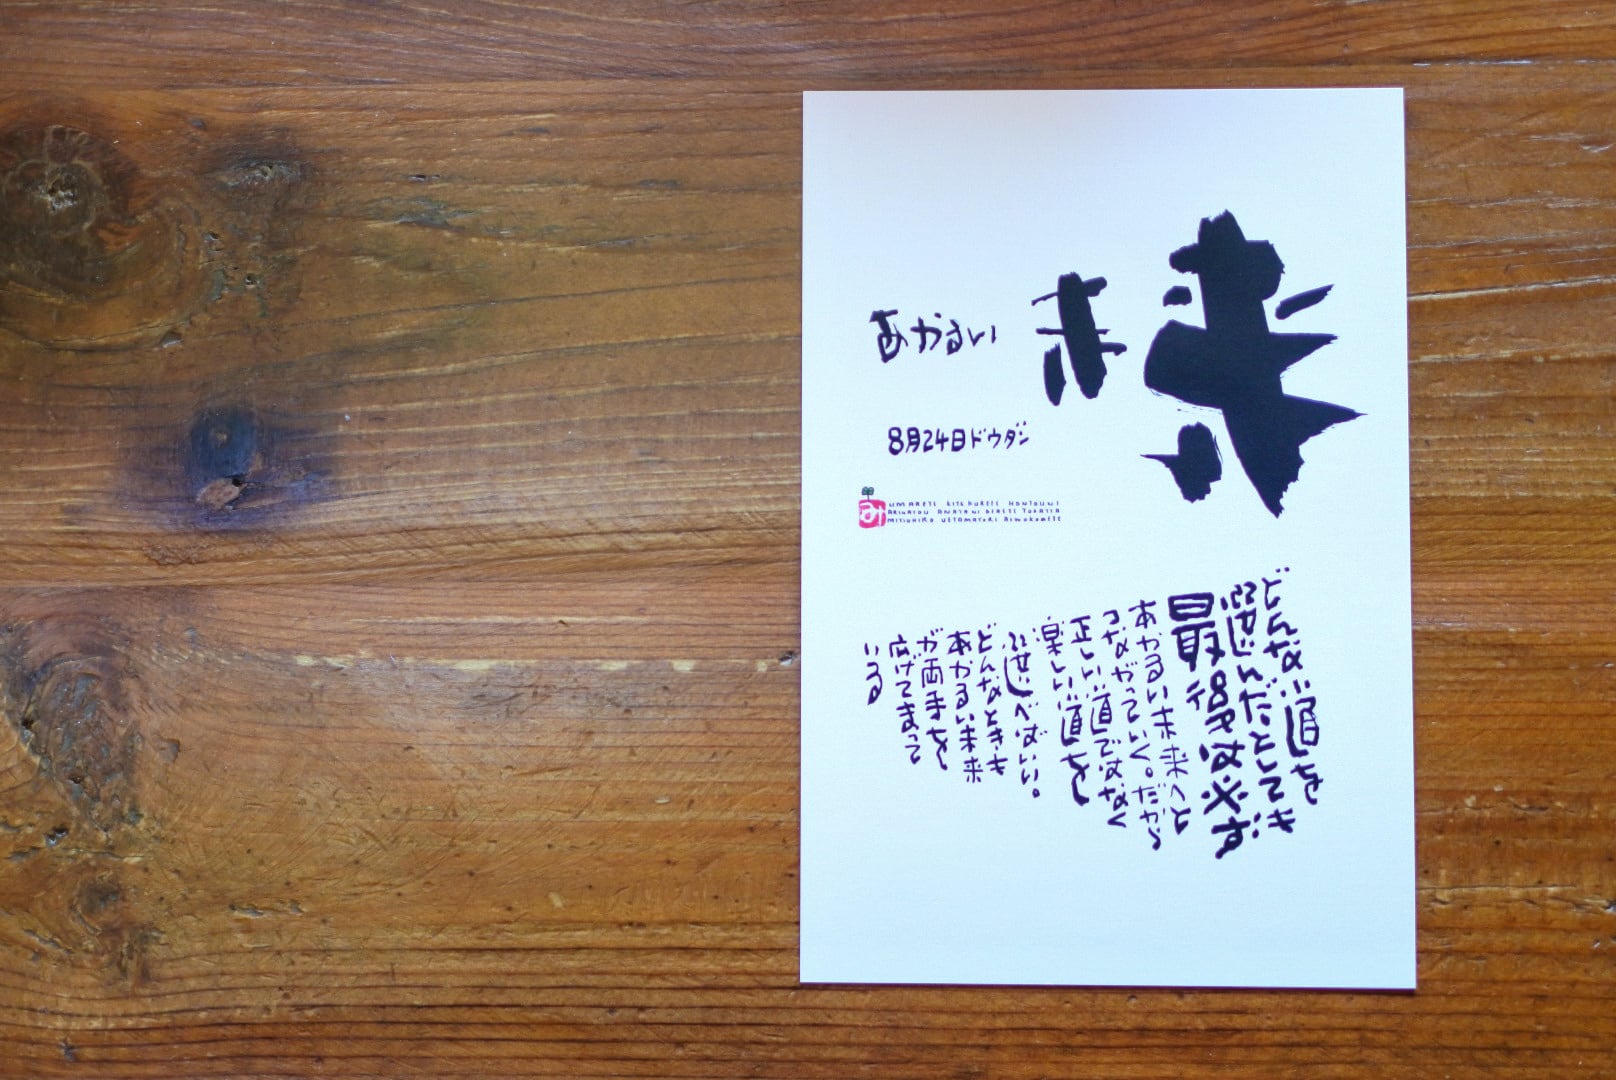 未来
あかるい
8月24日ドウダン
み
UMARETE KITEKURETE HONTOUNI
ARIGATOU ANATANI DEAETE YOKATTA
MITIUHIRO
どんな道を
選んだとしても
最後は必ず
あかるい未来へと
つながっていく。だから
正しい道ではなく
楽しい道を
選べばいい。
どんなときも
あかるい未来
が両手を
広げてまって
いる